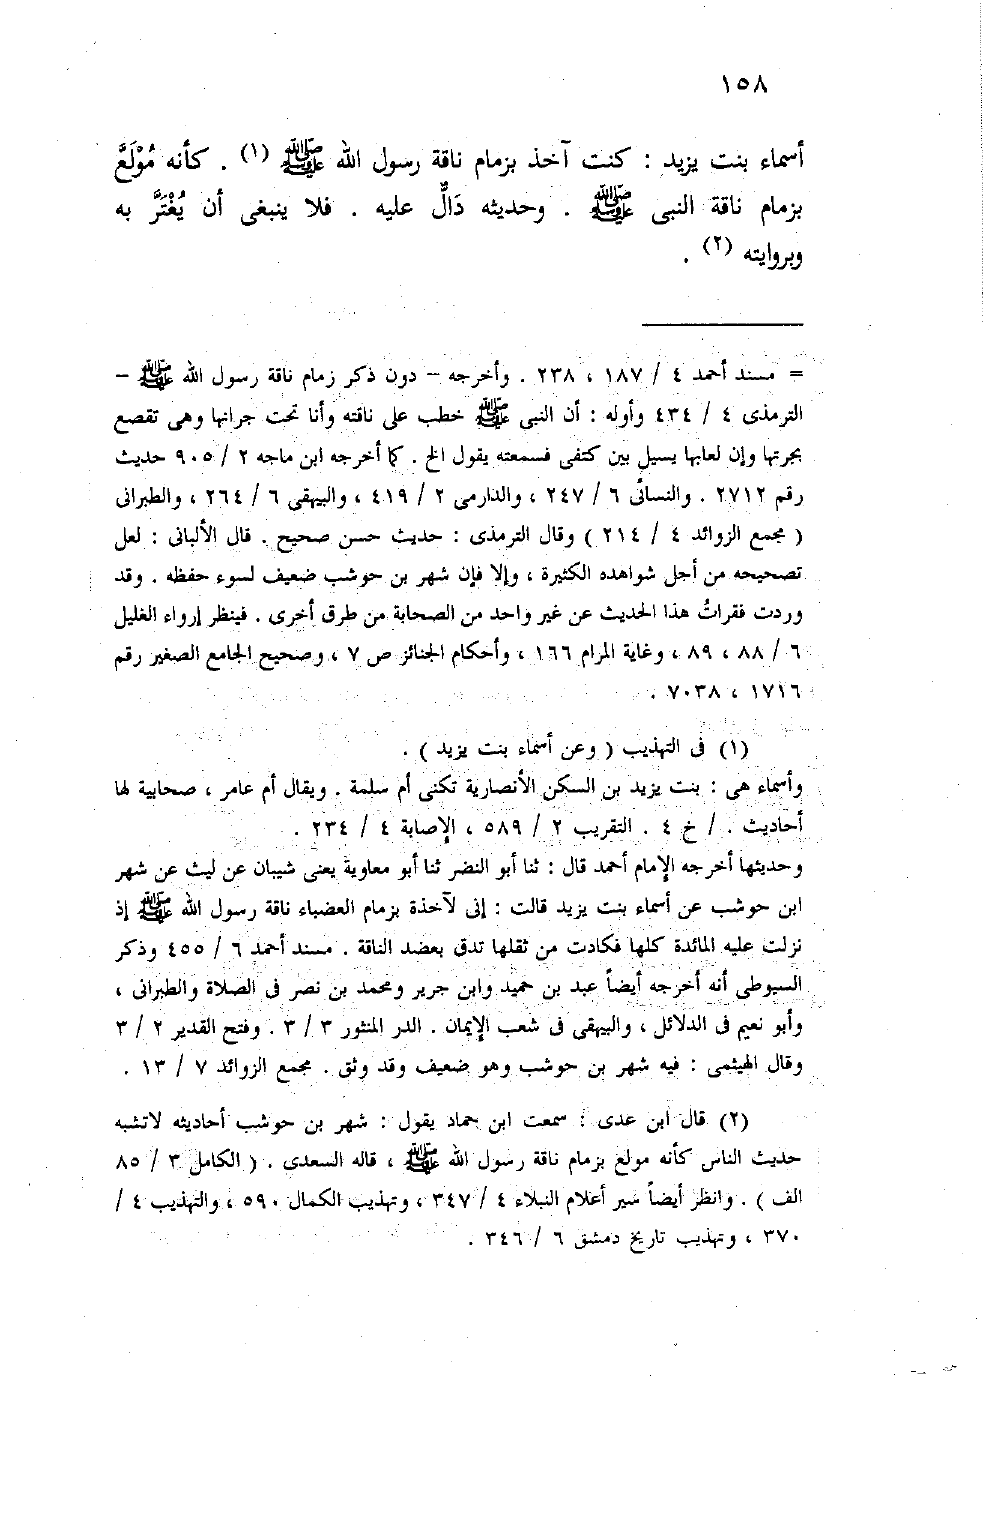 ١٥٨
أسماء بنت يزيد : كنت آخذ بزمام ناقة رسول الله ﷺ (١) . كأنه مُوْلَعٌ
بزمام ناقة النبى ﷺ . وحديثه دَالٌّ عليه . فلا ينبغى أن يُغْتَرَّ به
وبروايته (٢) .
= مسند أحمد ٤ / ١٨٧ ، ٢٣٨ . وأخرجه – دون ذكر زمام ناقة رسول الله ﷺ –
الترمذى ٤ / ٤٣٤ وأوله : أن النبى ﷺ خطب على ناقته وأنا تحت جرانها وهى تقصع
بجرتها وإن لعابها يسيل بين كتفى فسمعته يقول الخ . كما أخرجه ابن ماجه ٢ / ٩٠٥ حديث
رقم ٢٧١٢ . والنسائى ٦ / ٢٤٧ ، والدارمى ٢ / ٤١٩ ، والبيهقى ٦ / ٢٦٤ ، والطبرانى
( مجمع الزوائد ٤ / ٢١٤ ) وقال الترمذى : حديث حسن صحيح . قال الألبانى : لعل
تصحيحه من أجل شواهده الكثيرة ، وإلا فإن شهر بن حوشب ضعيف لسوء حفظه . وقد
وردت فقراتُ هذا الحديث عن غير واحد من الصحابة من طرق أخرى . فينظر إرواء الغليل
٦ / ٨٨ ، ٨٩ ، وغاية المرام ١٦٦ ، وأحكام الجنائز ص ٧ ، وصحيح الجامع الصغير رقم
١٧١٦ ، ٧٠٣٨ .
(١) فى التهذيب ( وعن أسماء بنت يزيد ) .
وأسماء هى : بنت يزيد بن السكن الأنصارية تكنى أم سلمة . ويقال أم عامر ، صحابية لها
أحاديث . / خ ٤ . التقريب ٢ / ٥٨٩ ، الإصابة ٤ / ٢٣٤ .
وحديثها أخرجه الإمام أحمد قال : ثنا أبو النضر ثنا أبو معاوية يعنى شيبان عن ليث عن شهر
ابن حوشب عن أسماء بنت يزيد قالت : إنى لآخذة بزمام العضباء ناقة رسول الله ﷺ إذ
نزلت عليه المائدة كلها فكادت من ثقلها تدق بعضد الناقة . مسند أحمد ٦ / ٤٥٥ وذكر
السيوطى أنه أخرجه أيضاً عبد بن حميد وابن جرير ومحمد بن نصر فى الصلاة والطبرانى ،
وأبو نعيم فى الدلائل ، والبيهقى فى شعب الإيمان . الدر المنثور ٣ / ٣ . وفتح القدير ٢ / ٣
وقال الهيثمى : فيه شهر بن حوشب وهو ضعيف وقد وثق . مجمع الزوائد ٧ / ١٣ .
(٢) قال ابن عدى : سمعت ابن حماد يقول : شهر بن حوشب أحاديثه لاتشبه
حديث الناس كأنه مولع بزمام ناقة رسول الله ﷺ ، قاله السعدى . ( الكامل ٣ / ٨٥
الف ) . وانظر أيضاً سير أعلام النبلاء ٤ / ٣٤٧ ، وتهذيب الكمال ٥٩٠ ، والتهذيب ٤ /
٣٧٠ ، وتهذيب تاريخ دمشق ٦ / ٣٤٦ .